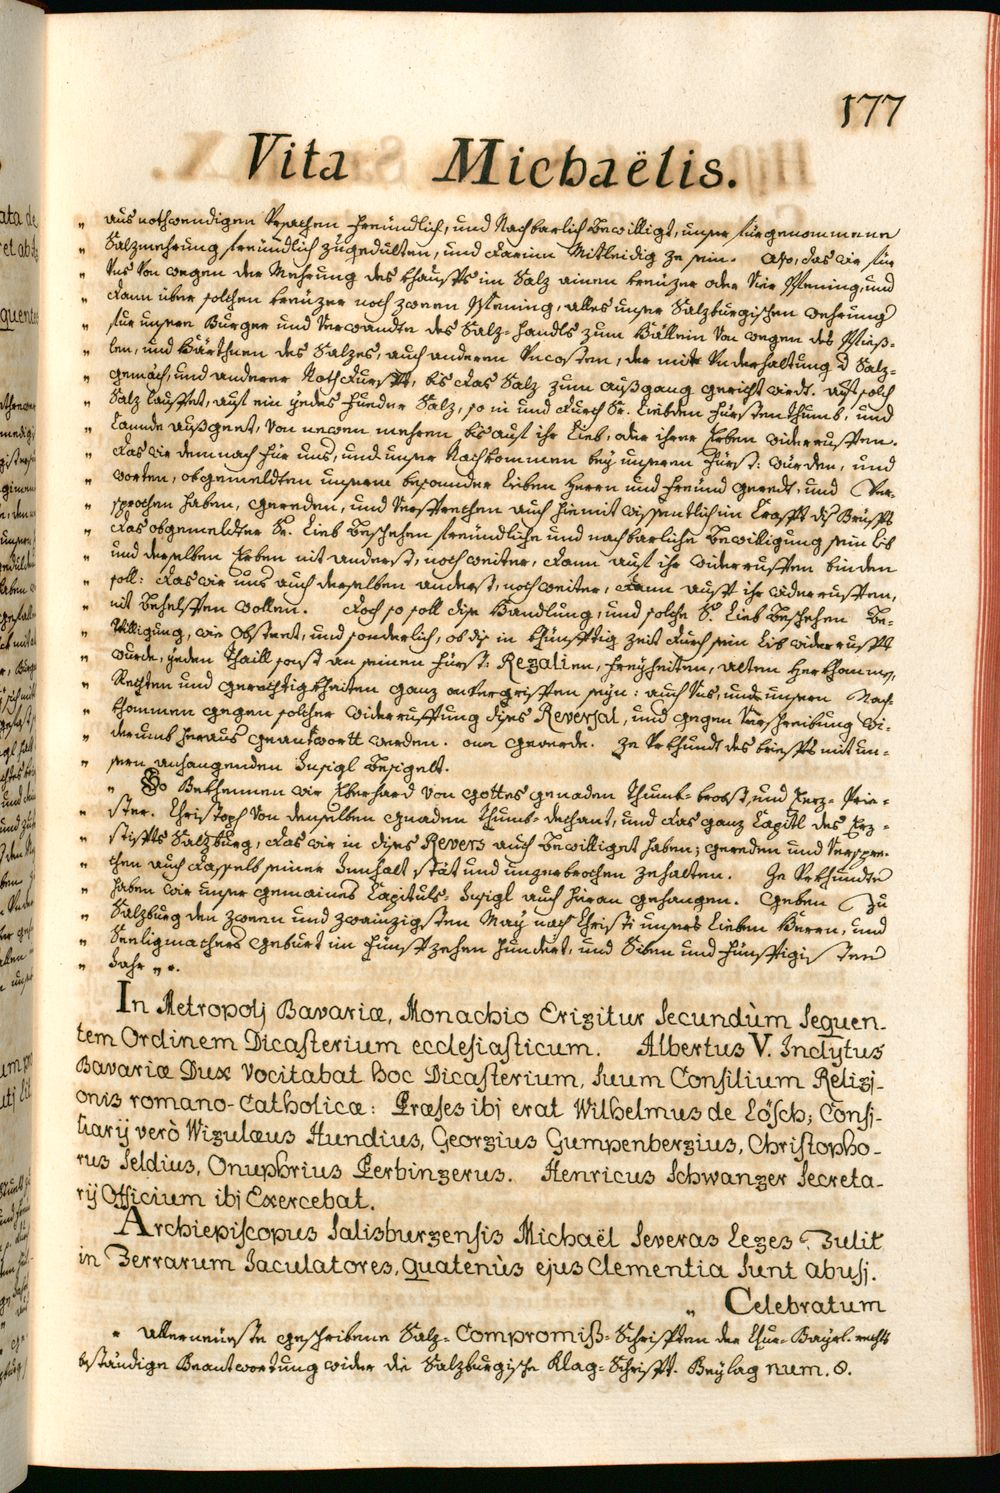 177
Vita Michaëlis.
„ aus nothwendigen Ursachen freündlich, und Nachbarlich bewilligt, unser fürgenommene
„ Salzmehrung freündlich zugedulten, und darinn Mitleidig ze sein. Also, das wir für
„ Uns von wegen der Mehrung des khauffs im Salz ainen kreüzer oder Vier Pfening, und
„ dann über solchen kreüzer noch zween Pfening, alles unser Salzburgischen wehrung
„ für unsere Burger und Verwandte des Salz-handls zum Hällein von wegen des
„ len, und Härthnen des Salzes, auch anderen Uncosten, der mit Underhaltung d Salz-
„ gemäch, und anderer Nothdurfft, bis das Salz zum außgang gericht wirdt. auf solch
„ Salz lauffet, auf ein yedes Fueder Salz, so in und durch Sr. Liebden Fürstenthumb, und
„ Lannde außgeet, von newen mehren bis auf ihr Lieb, oder ihrer Erben widerrueffen.
„ das wir demnach für uns, und unser Nachkommen bey unseren Fürst: würden, und
„ worten, obgemeldten unserm besonder lieben Herrn und freünd geredt, und Ver-
„ sprochen haben, gereden, und versprechen auch hiemit wissentlich in Crafft diß Brieffs
„ das obgemeldter Sr. Lieb beschehen freündliche und nachbarliche bewilligung sein lieb
„ und derselben Erben nit anderst, noch weiter, dann auf ihr widerrueffen binden
„ soll: das wir uns auch derselben anderst, noch weiter, dann auff ihr widerrueffen,
„ nit behelffen wollen. Doch so soll dise Handlung, und solche Sr. Lieb beschehen Be-
„ willigung, wie obsteet, und sonderlich, ob die in khünfftig zeit durch sein Lieb widerrufft
„ wurde, yeden thaill sonst an seinen Fürst: Regalien, Freyheiten, altem herkhommen,
„ Rechten und gerechtigkheiten ganz onvergriffen seyn: auch Uns, und unsern Nach-
„ khommen gegen solcher widerrueffung dises Reversal, und gegen Verschreibung wi-
„ derumb heraus geantwortt werden. one geverde. Ze Urkhundt des brieffs mit un-
„ sern anhangenden Insigl besigelt.
„ So Bekhennen wir Eberhard von gottes genaden Thumb-brobst, und Erz-Prie-
„ ster. Christoph von denselben gnaden Thumb-dechant, und das ganz Capitl des Erz-
„ stiffts Salzburg, das wir in dises Revers auch bewilliget haben; gereden und verspre-
„ chen auch dasselb seiner Innhalt stät und unzerbrochen zehalten. Ze Urkhundte
„ haben wir unser gemaines Capituls-Insigl auch hieran gehangen. Geben zu
„ Salzburg den zween und zwainzigsten May nach Christi unsers Lieben Herrn, und
„ Seeligmachers geburt im fünffzehen hundert, und Siben und fünffzigisten
„ Jahr „ *.
In Metropolj Bavariæ, Monachio Erigitur Secundùm Sequen-
tem Ordinem Dicasterium ecclesiasticum. Albertus V. Inclytus
Bavariæ Dux Vocitabat hoc Dicasterium, Suum Consilium Religj-
onis romano-Catholicæ: Præses ibj erat Wilhelmus de Lösch; Consi-
liarij verò Wigulæus Hundius, Georgius Gumpenbergius, Christopho-
rus Seldius, Onuphrius Perbingerus. Henricus Schwanger Secreta-
rij Officium ibj Exercebat.
Archiepiscopus Salisburgensis Michaël Severas Leges Tulit
in Ferrarum Jaculatores, quatenùs ejus Clementia Sunt abusj.
„ Celebratum
* allerneüeste geschribene Salz-Compromiß-Schrifften der Chur-Bayrl. rechts
beständige Beantwortung wider die Salzburgische Klag-Schrifft. Beylag num. 8.